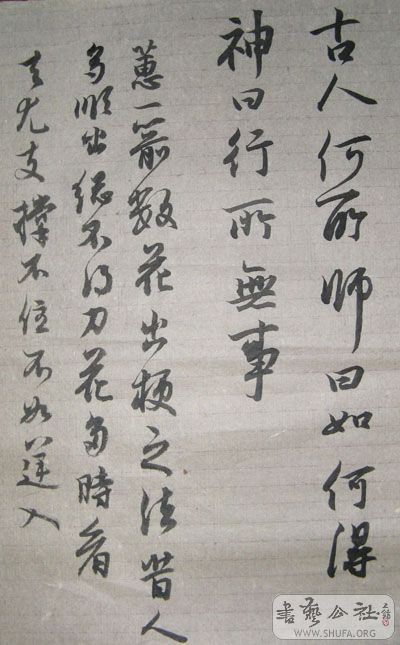 古人何所師曰如何得
神曰行所無事
蕙一箭數花出梗之法昔人
多順出總不得力花多時看
去尤支撐不住不如逆入
書藝公社
WWW.SHUFA.ORG